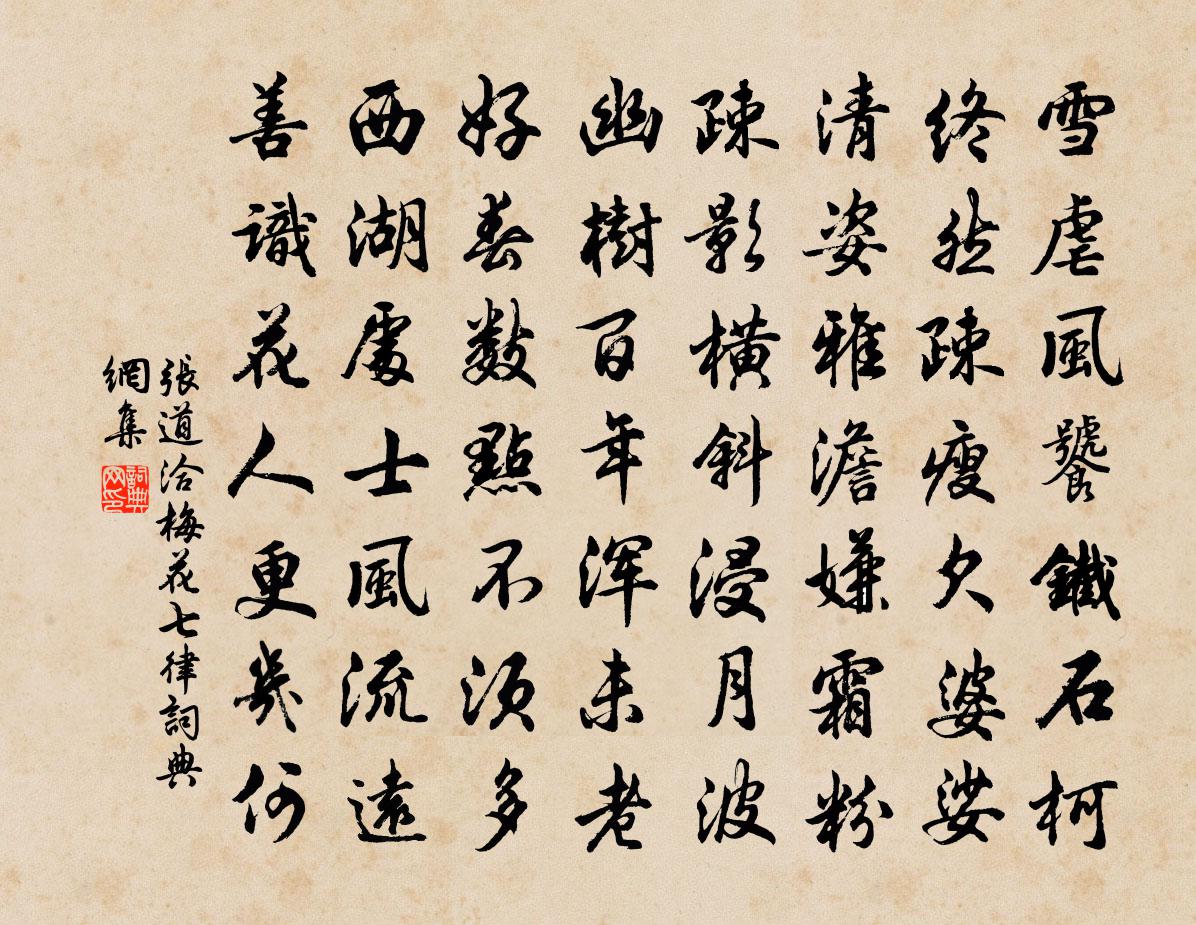 雪虐風饕鐵石柯
終然疎瘦欠婆娑
清姿雅澹嫌霜粉
疎影橫斜浸月波
幽樹百年渾未老
好春數點不須多
西湖處士風流遠
善識花人更幾何
張道洽梅花七律詞典
網集
詞典
网印